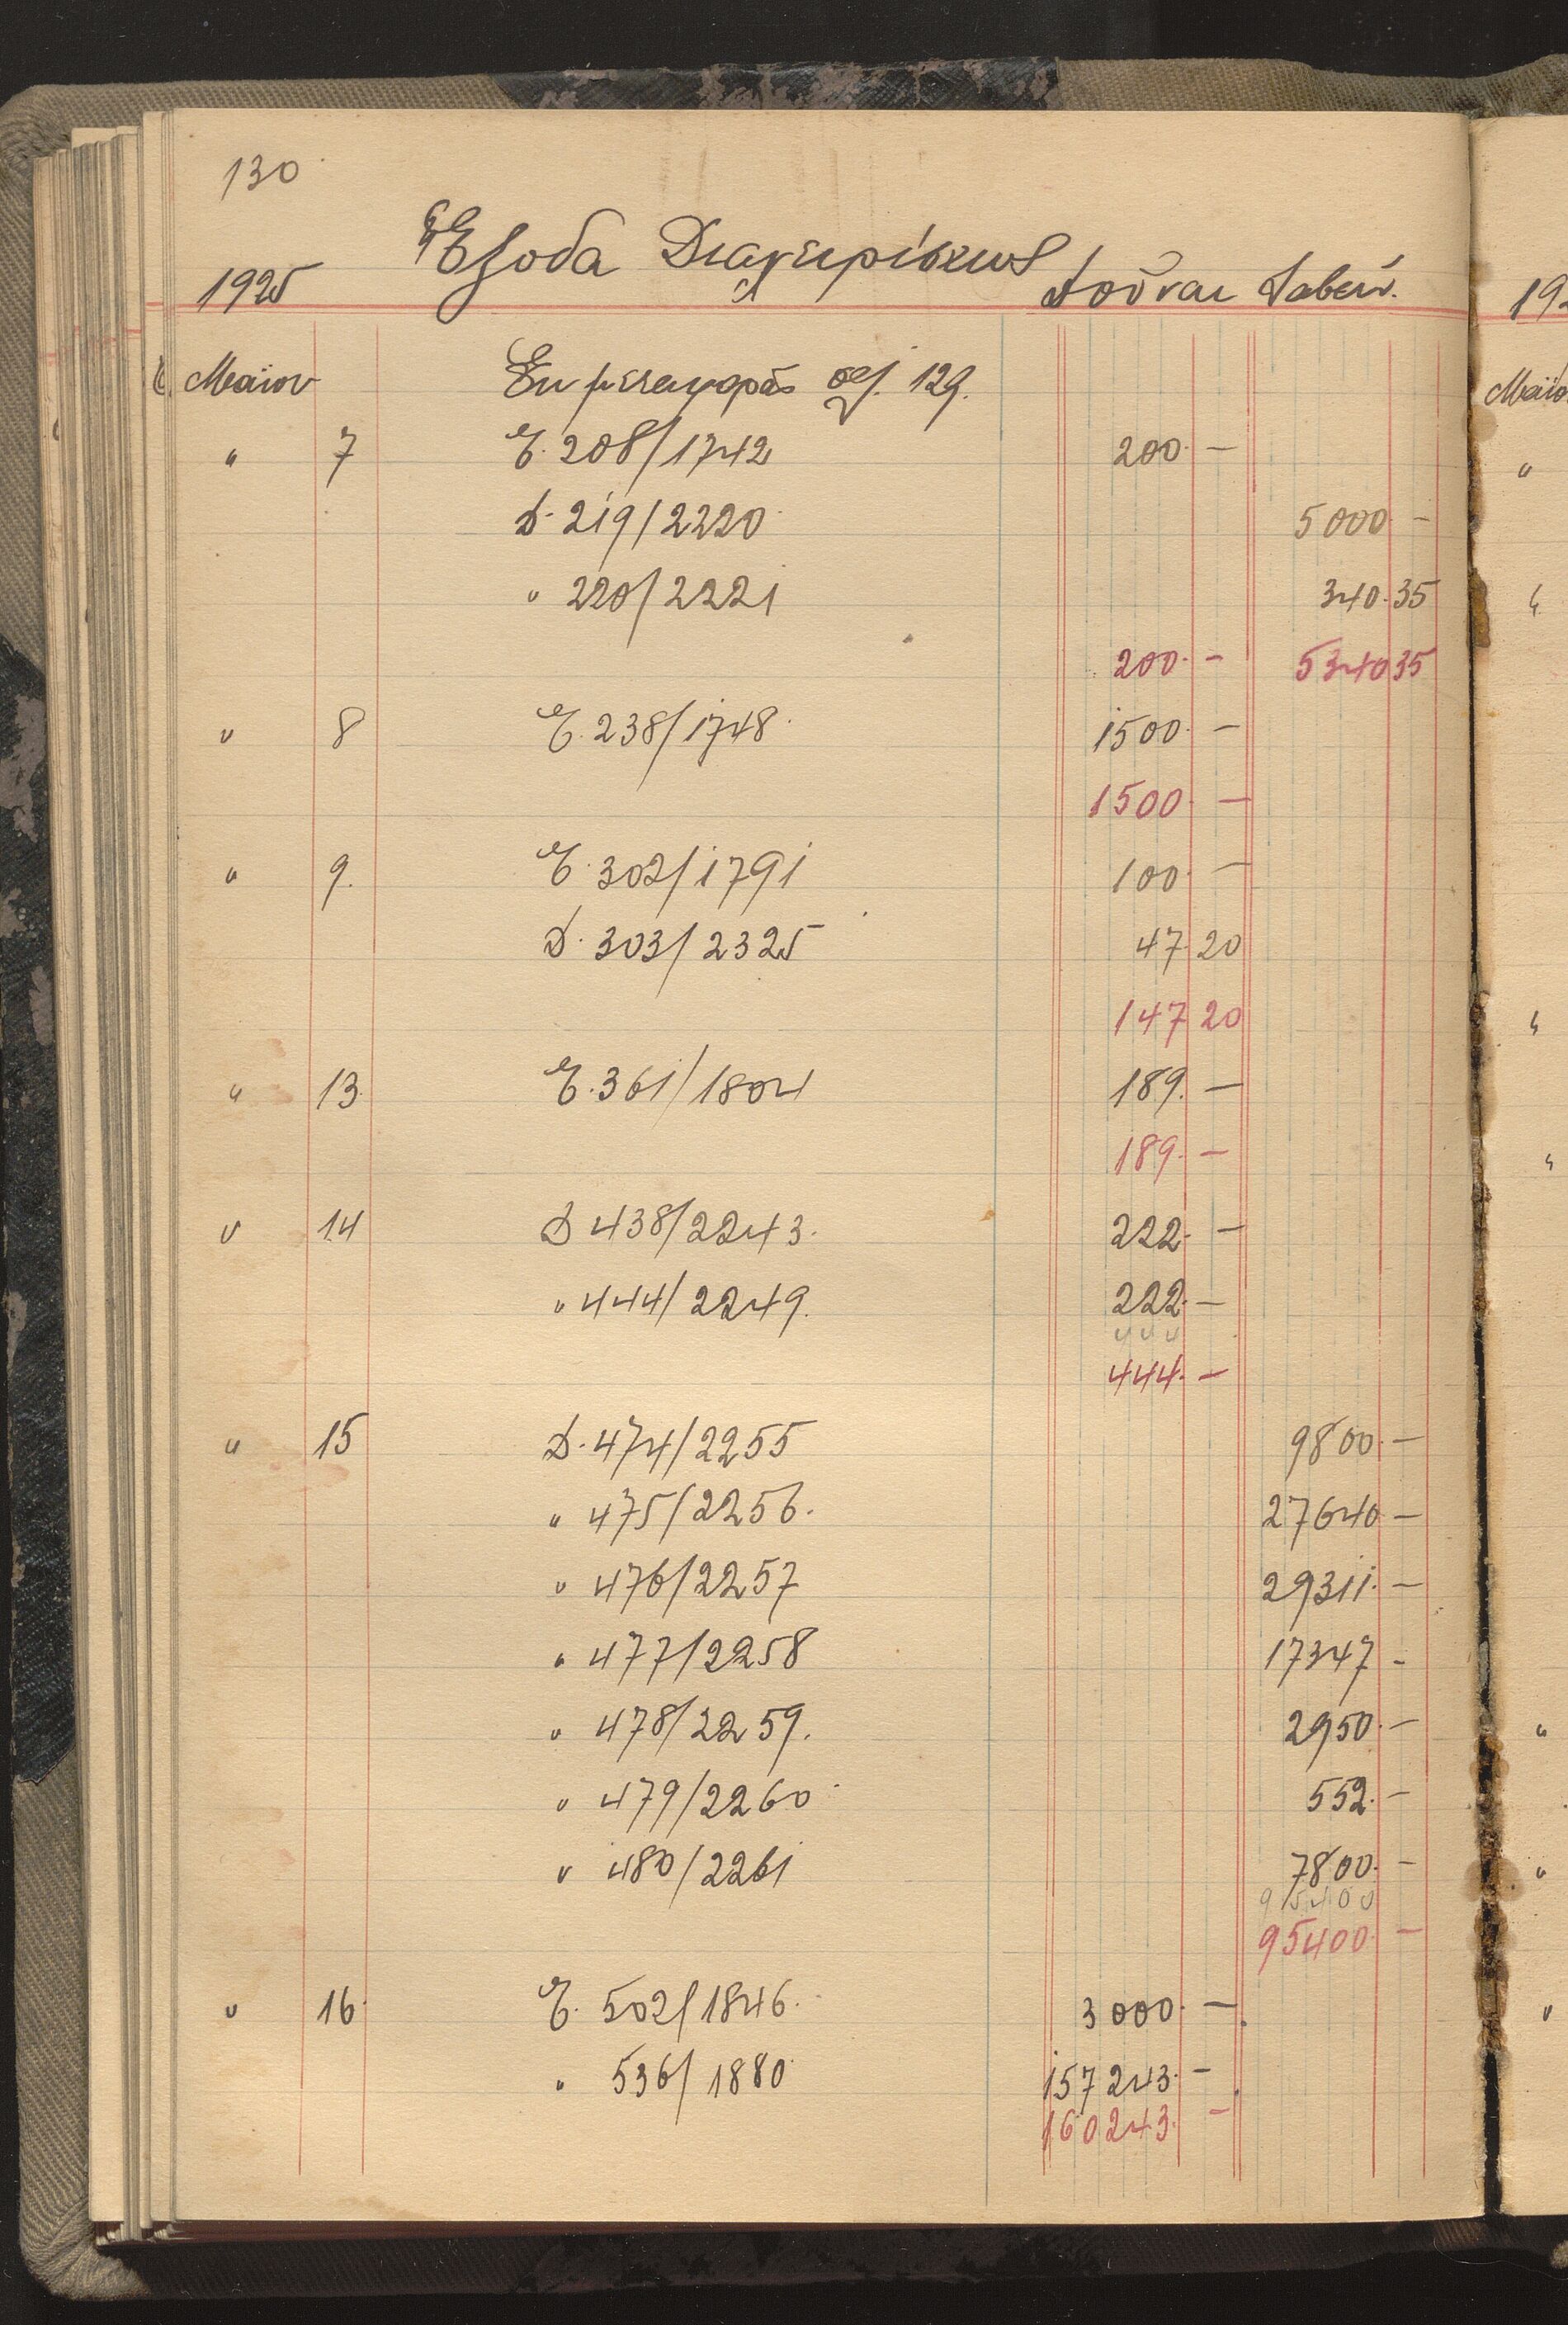 130
Ἔξοδα Διαχειρίσεως
1925 Δοῦναι Λαβεῖν.
Μαΐου Ἐκ μεταφορᾶς σελ. 129.
" 7 Ε. 208/1742 200. —
Δ. 219/2220 5000 —
" 220/2221 340.35
200. — 5340 35
" 8 Ε. 238/1748 1500. —
1500. —
" 9. Ε. 302/1791 100. —
Δ. 303/2325 47.20
147 20
" 13. Ε. 361/1804 189. —
189. —
" 14 Δ 438/2243. 222. —
" 444/2249. 222. —
444
444. —
" 15 Δ. 474/2255 9800. —
" 475/2256. 27640. —
" 476/2257 29311. —
" 477/2258 17347 -
" 478/2259. 2950. —
" 479/2260 552. —
" 480/2261 7800. —
95400
95400. —
" 16. Ε. 502/1846. 3000. —
" 536/1880 157243. —
160243. —
192
Μαΐο
"
"
"
"
"
"
"